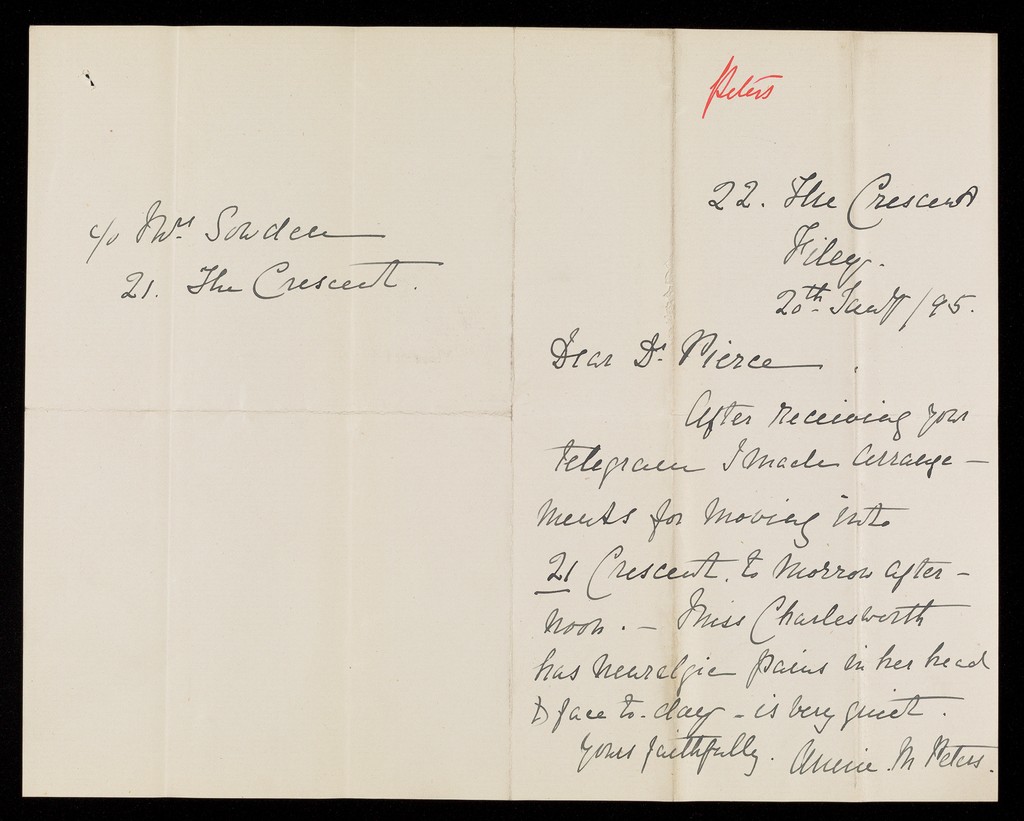 c/o Mrs. Sowden
21. The Crescent.
Peters
22. The Crescent
Filey.
20th Jany/95.
Dear Dr. Pierce
After receiving your
telegram I made arrange-
ments for moving into
21 Crescent. to morrow after-
noon. - Miss Charlesworth
has neuralgic pains in her head
& face to-day - is very quiet.
Yours faithfully. Annie. M Peters.